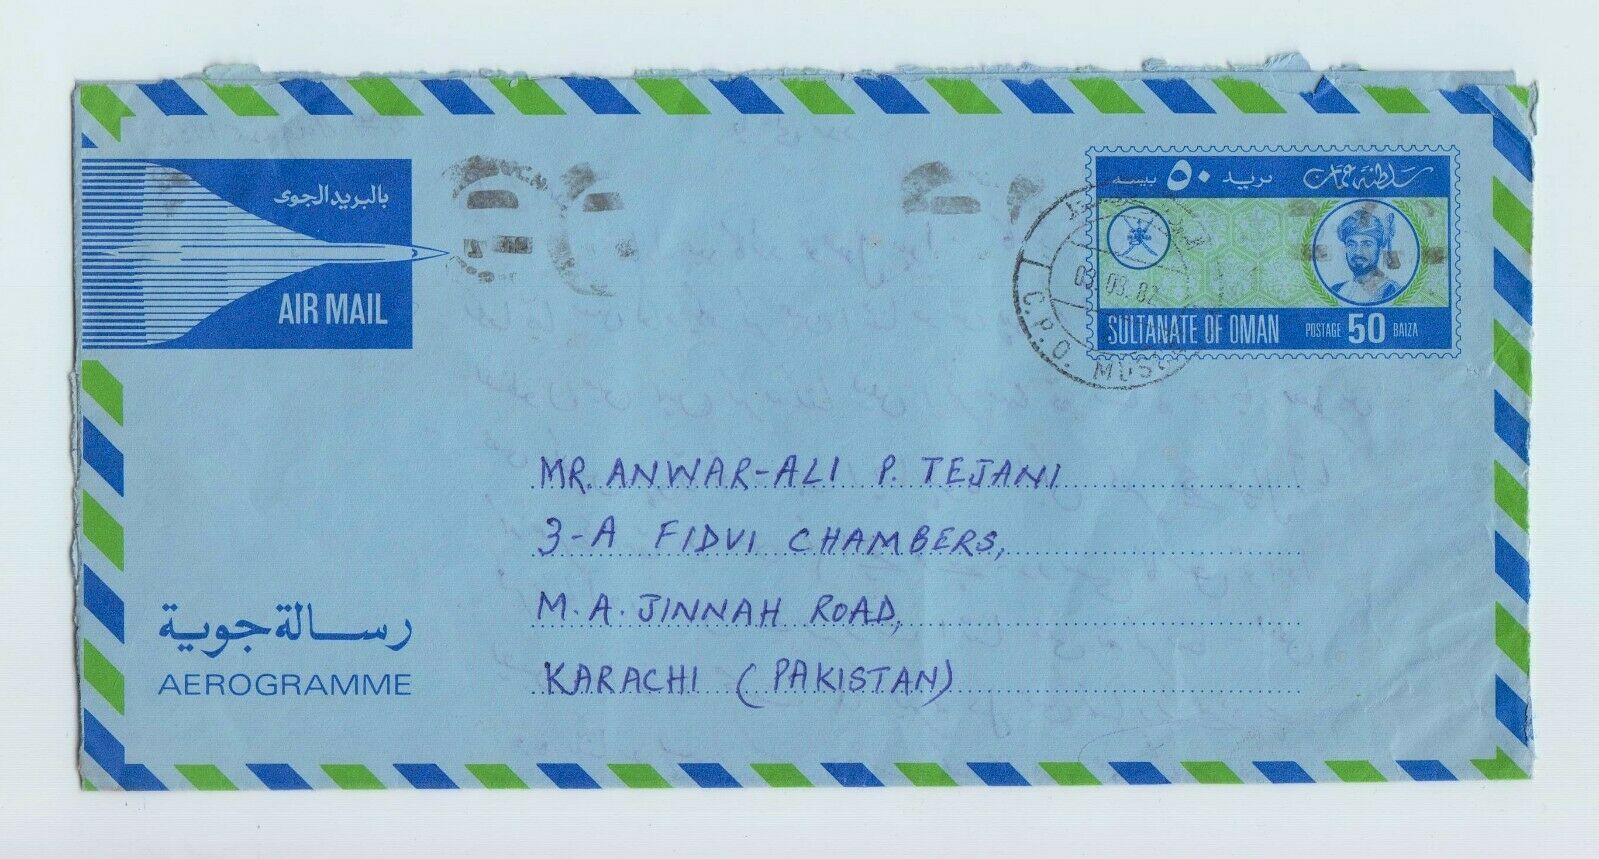 بالبريد الجوى
AIR MAIL
سلطنة عمان
بريد ٥٠ بيسه
SULTANATE OF OMAN
POSTAGE 50 BAIZA
C.P.O.
MR. ANWAR-ALI P. TEJANI
3-A FIDVI CHAMBERS,
M.A. JINNAH ROAD,
KARACHI (PAKISTAN)
رسالة جوية
AEROGRAMME